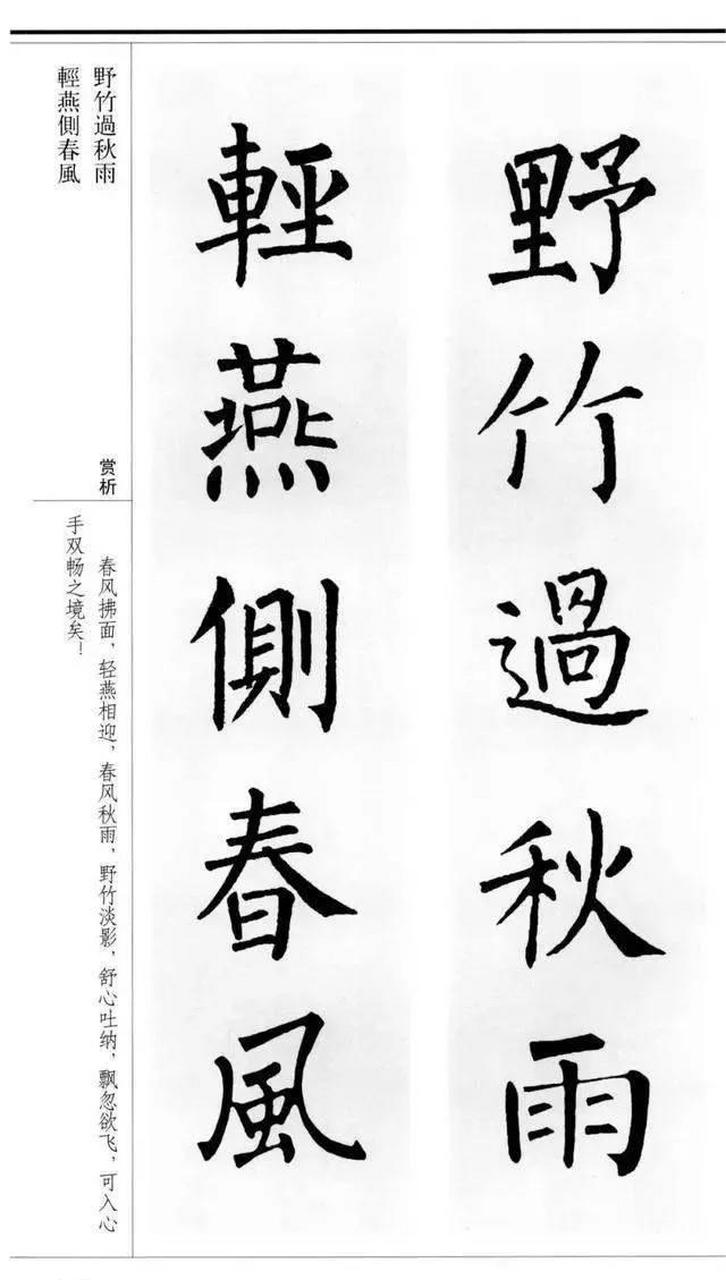 野竹過秋雨
輕燕側春風
野竹過秋雨
輕燕側春風
赏析
春风拂面，轻燕相迎，春风秋雨，野竹淡影，舒心吐纳，飘忽欲飞，可入心
手双畅之境矣！